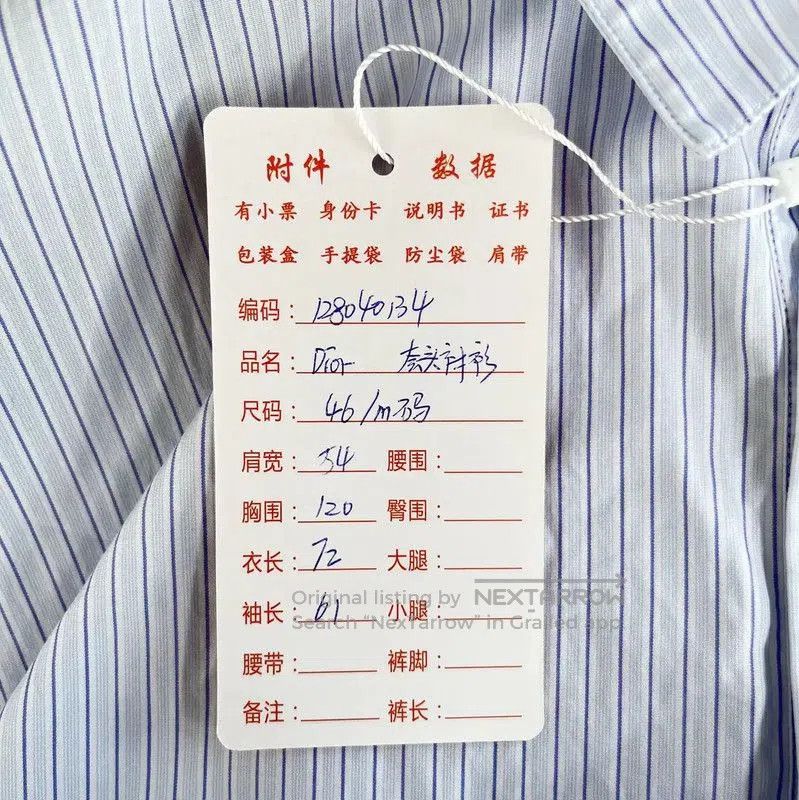 附件 数据
有小票 身份卡 说明书 证书
包装盒 手提袋 防尘袋 肩带
编码: 12804034
品名: Dior 衬衫
尺码: 46/m码
肩宽: 54 腰围:
胸围: 120 臀围:
衣长: 72 大腿:
袖长: 61 小腿:
腰带: 裤脚:
备注: 裤长:
Original listing by NEXTARROW
Search "NexTarrow" in Grailed app